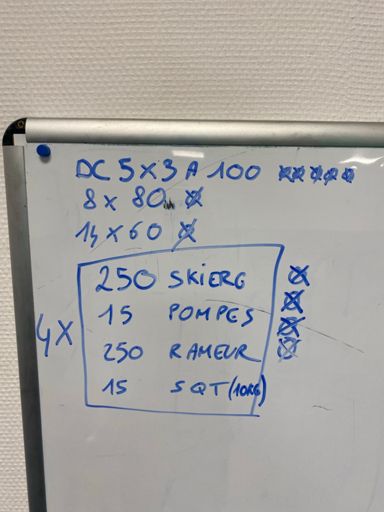 DC 5x3 A 100
8 x 80
14 x 60
4x
250 SKIERG
15 POMPES
250 RAMEUR
15 SQT (10KG)